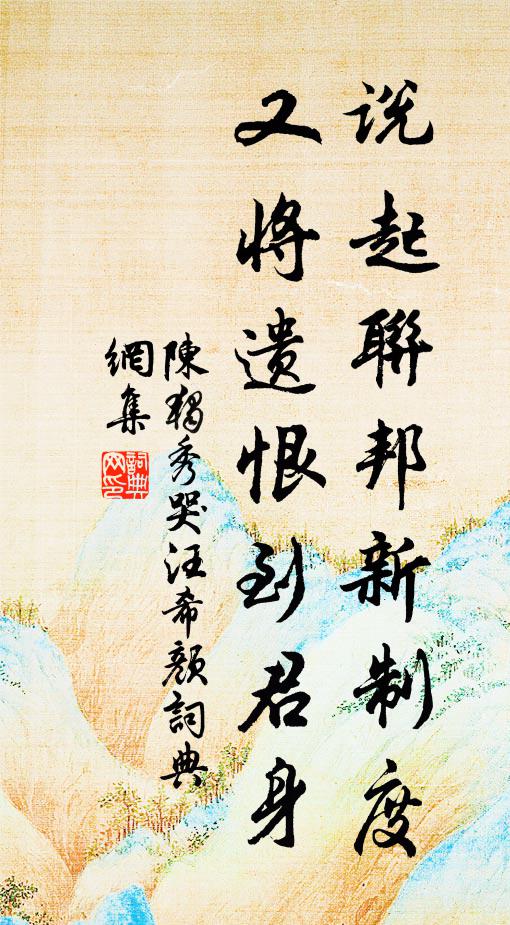 说起聯邦新制度
又将遗恨到君身
陳獨秀哭汪希顏詞典
網集
詞典
网印